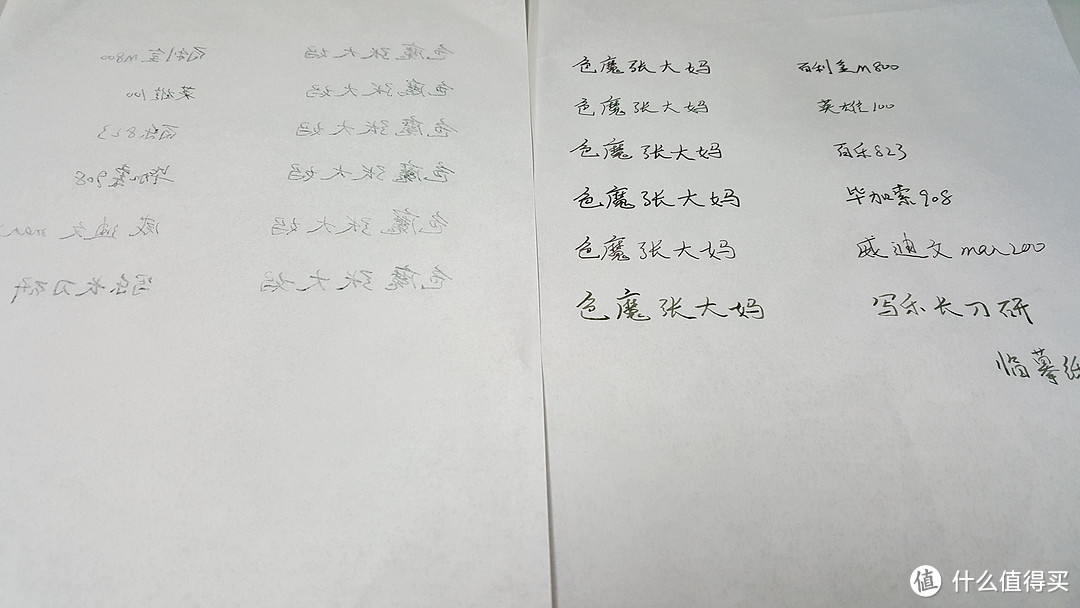 色魔张大妈 百利金m800
色魔张大妈 英雄100
色魔张大妈 百乐823
色魔张大妈 毕加索908
色魔张大妈 威迪文man200
色魔张大妈 写乐长刀研
临摹纸
值 什么值得买